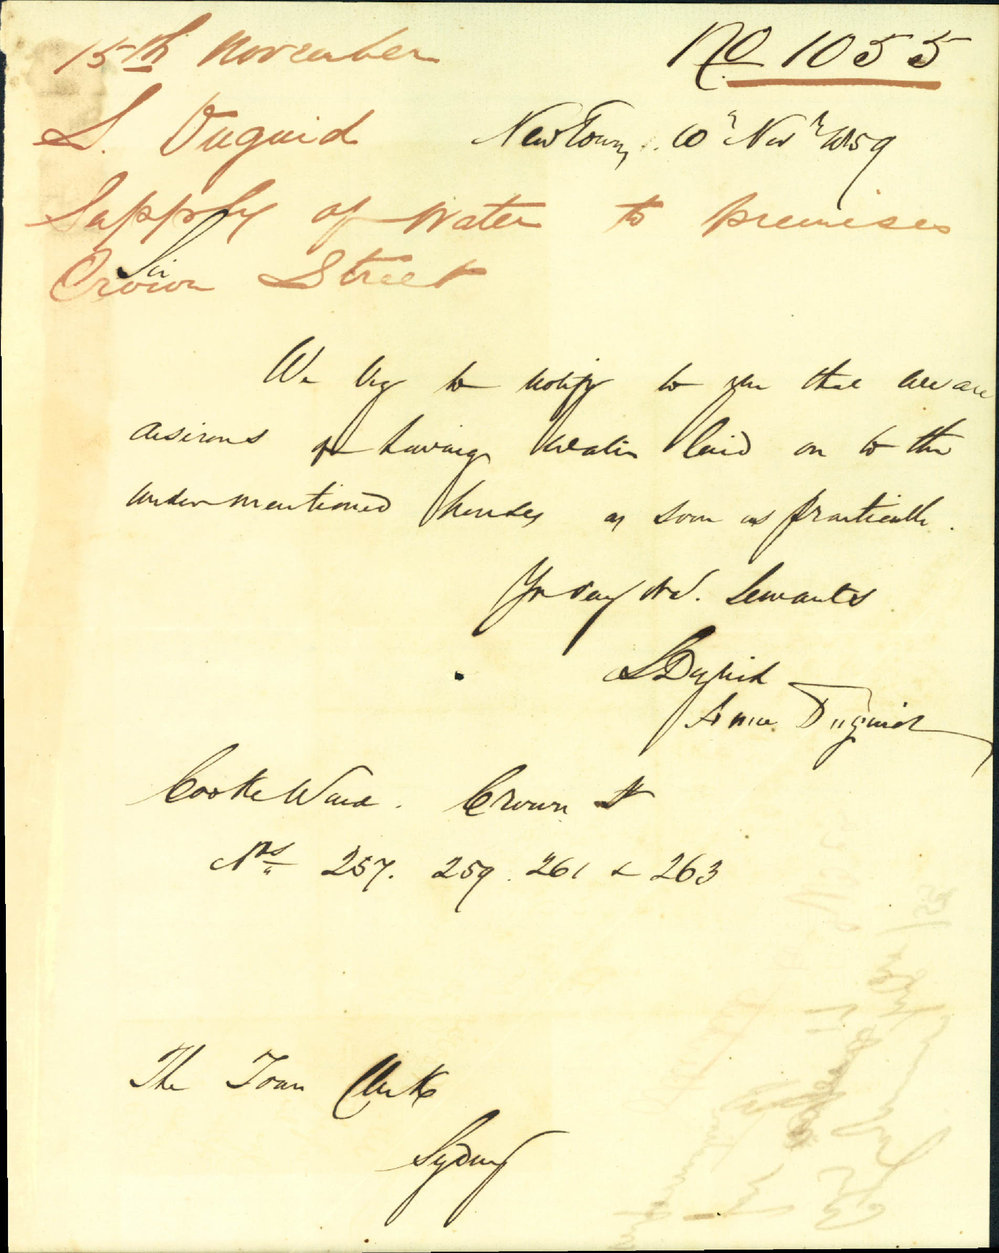 15th November
No 1055
S. Duguid
Newtown 10th Novr 1859
Supply of Water to premises
Sir
Crown Street
We beg to notify to you that we are
desirous of having Water laid on to the
undermentioned houses as soon as practicable.
Yr Servants
S Duguid
Anne Duguid
Cooke Ward. Crown St
Nos 257. 259. 261 & 263
The Town Clerk
Sydney